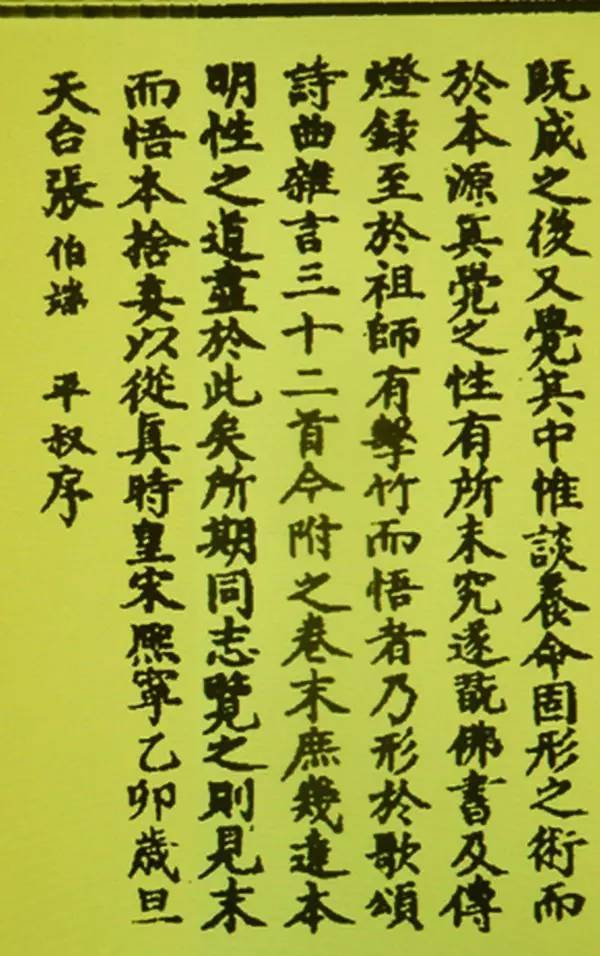 既成之後又覺其中惟談養命固形之術而
於本源真覺之性有所未究遂翫佛書及傳
燈錄至於祖師有擊竹而悟者乃形於歌頌
詩曲雜言三十二首今附之卷末庶幾達本
明性之道盡於此矣所期同志覽之則見末
而悟本捨妄以從真時皇宋熈寧乙卯歲旦
天台張伯端 平叔序